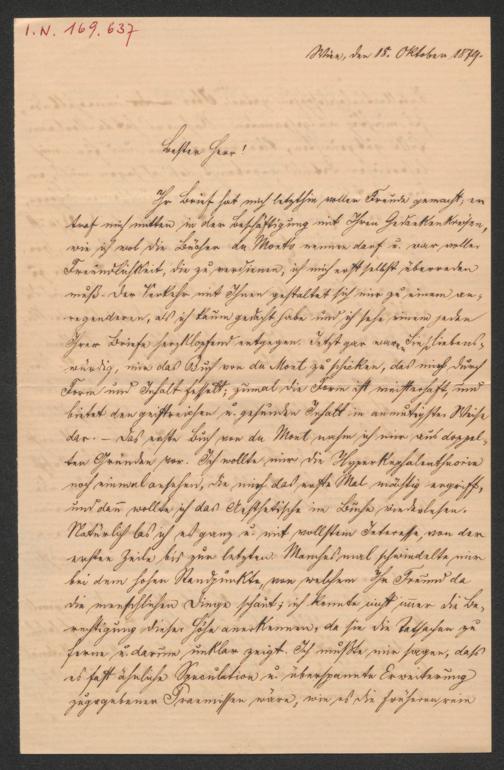 I. N. 169.637
Wien, den 15. Oktober 1879.
Bester Herr!
Ihr Brief hat mich letzthin voller Freude gemacht, er
traf mich mitten in der Beschäftigung mit Ihren Gedankenkreisen,
wie ich wol die Bücher du Monts nennen darf u. war voller
Freundlichkeit, die zu verdienen, ich mich erst selbst überreden
muß. Der Verkehr mit Ihnen gestaltet sich mir zu einem an-
regenderen, als ich kaum gedacht habe und ich sehe einem jeden
Ihrer Briefe herzklopfend entgegen. Jetzt gar waren Sie so liebens-
würdig, mir das Buch von du Mont zu schicken, das mich durch
Form und Inhalt fesselt; zumal die Form ist meisterhaft, und
bietet den geistreichen u. gesunden Inhalt in anmutigster Weise
dar. – Das erste Buch von du Mont nahm ich mir aus doppel-
ten Gründen vor. Ich wollte mir die Hyperkephalentheorie
noch einmal ansehen, die mich das erste Mal mächtig ergriff,
und dann wollte ich das Aesthetische im Buche wiederlesen.
Natürlich las ich es ganz u. mit vollstem Interesse, von der
ersten Zeile bis zur letzten. Manchesmal schwindelte mir
bei dem hohen Standpunkte, von welchem Ihr Freund da
die menschlichen Dinge schaut; ich konnte nicht immer die Be-
rechtigung dieser Höhe anerkennen, da sie die Tatsachen zu
ferne u. darum unklar zeigt. Ich mußte mir sagen, dass
es fast ähnliche Speculation u. überspannte Erweiterung
zugegebener Praemissen wäre, wie es die früheren rein